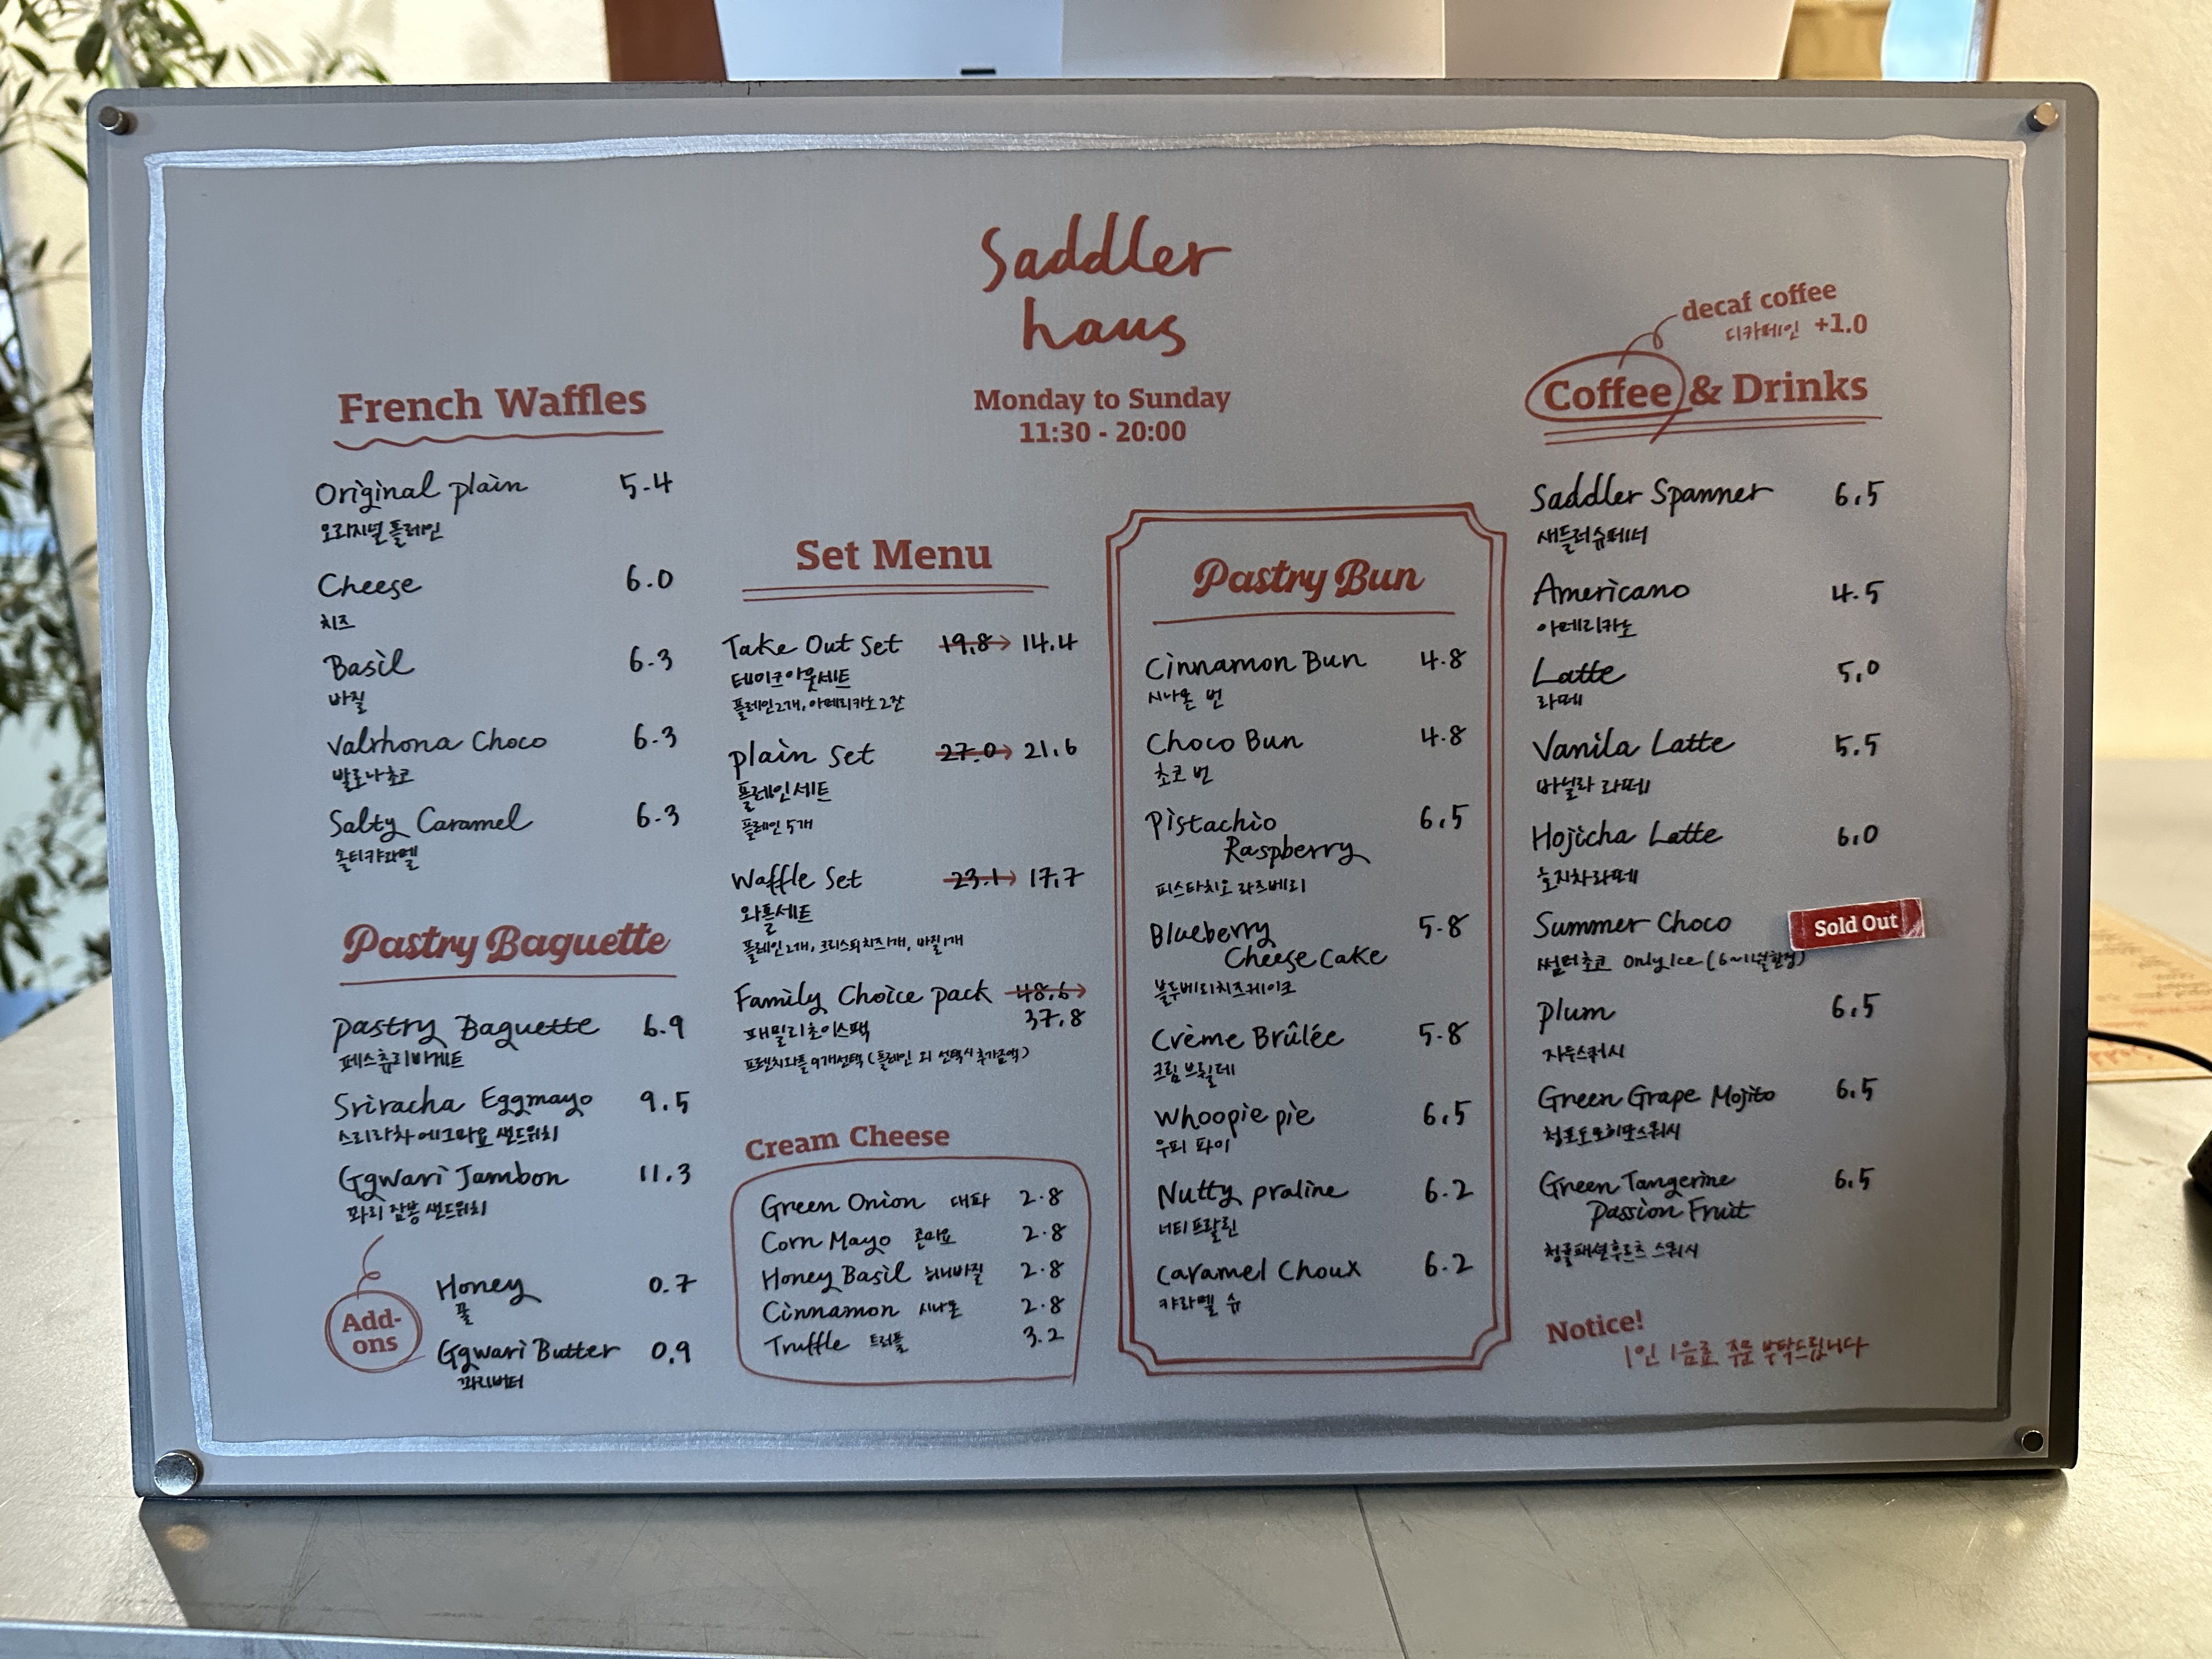 Saddler
haus
Monday to Sunday
11:30 - 20:00
French Waffles
Original plain 5.4
오리지널 플레인
Cheese 6.0
치즈
Basil 6.3
바질
Valrhona Choco 6.3
발로나초코
Salty Caramel 6.3
솔티캬라멜
Pastry Baguette
Pastry Baguette 6.9
페스츄리바게트
Sriracha Eggmayo 9.5
스리라차에그마요 샌드위치
Ggwari Jambon 11.3
꽈리 잠봉 샌드위치
Add-
ons
Honey 0.7
꿀
Ggwari Butter 0.9
꽈리버터
Set Menu
Take Out Set 19.8 → 14.4
테이크아웃세트
플레인2개, 아메리카노2잔
Plain Set 27.0 → 21.6
플레인세트
플레인 5개
Waffle Set 23.1 → 17.7
와플세트
플레인2개, 크리스피치즈1개, 바질1개
Family Choice pack 48.6 →
37.8
패밀리초이스팩
프렌치와플 9개선택 (플레인 외 선택시 추가금액)
Cream Cheese
Green Onion 대파 2.8
Corn Mayo 콘마요 2.8
Honey Basil 허니바질 2.8
Cinnamon 시나몬 2.8
Truffle 트러플 3.2
Pastry Bun
Cinnamon Bun 4.8
시나몬 번
Choco Bun 4.8
초코 번
Pistachio 6.5
Raspberry
피스타치오 라즈베리
Blueberry 5.8
Cheese Cake
블루베리치즈케이크
Crème Brûlée 5.8
크림 브륄레
Whoopie pie 6.5
우피 파이
Nutty praline 6.2
너티 프랄린
Caramel Choux 6.2
캬라멜 슈
decaf coffee
디카페인 +1.0
Coffee & Drinks
Saddler Spanner 6.5
새들러슈페너
Americano 4.5
아메리카노
Latte 5.0
라떼
Vanila Latte 5.5
바닐라 라떼
Hojicha Latte 6.0
호지차라떼
Summer Choco Sold Out
썸머초코 Only Ice (6~11월한정)
Plum 6.5
자두스쿼시
Green Grape Mojito 6.5
청포도모히또스쿼시
Green Tangerine 6.5
Passion Fruit
청귤패션후르츠 스쿼시
Notice!
1인 1음료 주문 부탁드립니다